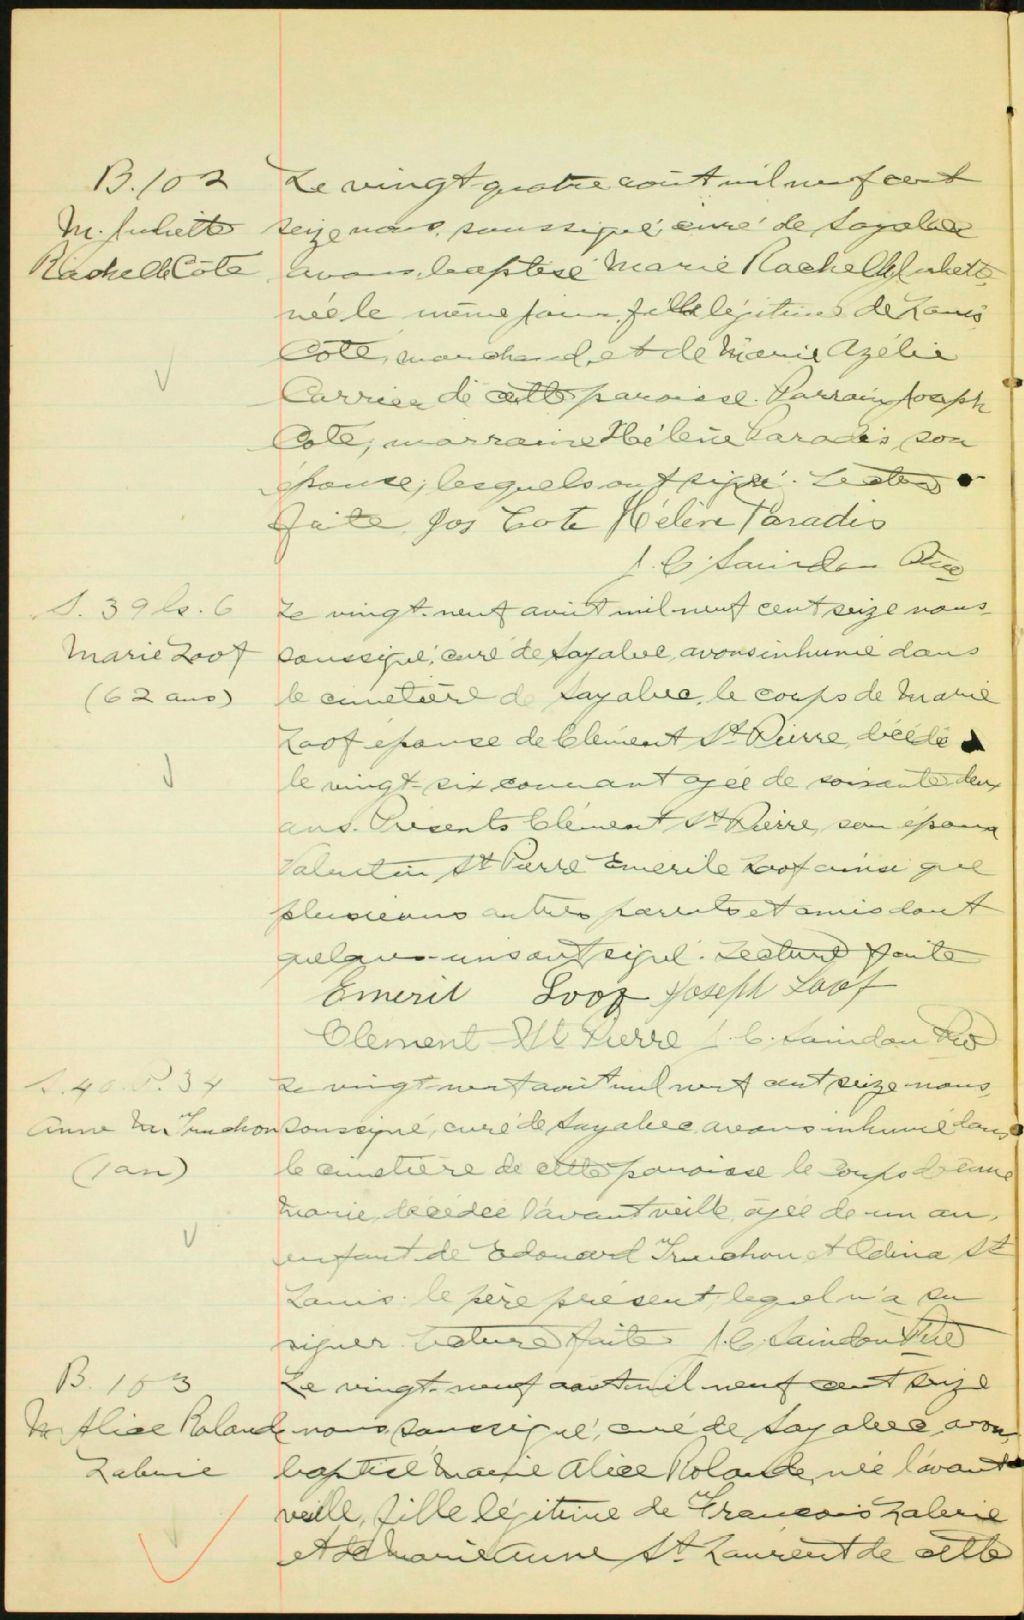 B. 102
M. Juliette
Rachelle Côté
Le vingt quatre août mil neuf cent
seize nous, soussigné, curé de Sayabec
avons baptisé Marie Rachelle Juliette
née le même jour, fille légitime de Louis
Côté, marchand, et de Marie Azélie
Carrier de cette paroisse. Parrain Joseph
Côté, marraine Hélène Paradis, son
épouse, lesquels ont signé. Lecture
faite. Jos Cote Hélène Paradis
J. C. Saindon Ptre
S. 39 Gs. 6
Marie Zoof
(62 ans)
Le vingt-neuf août mil-neuf cent seize nous
soussigné, curé de Sayabec, avons inhumé dans
le cimetière de Sayabec, le corps de Marie
Zoof épouse de Clément St Pierre, décédé
le vingt-six courant agée de soixante deux
ans. Présents Clément St Pierre, son époux
Valentin St Pierre Emerile Zoof ainsi que
plusieurs autres parents et amis dont
quelques-uns ont signé. Lecture faite
Emeril Loof Joseph Loof
Clément St Pierre J. C. Saindon Ptre
S. 40. P. 34
Anne M. Truchon
(1 an)
Le vingt-neuf août mil neuf cent seize nous,
soussigné, curé de Sayabec, avons inhumé dans
le cimetière de cette paroisse le corps de Anne
Marie, décédée l'avant veille, agée de un an,
enfant de Edouard Truchon et Odina St
Louis. le père présent, lequel n'a su
signer. Lecture faite. J. C. Saindon Ptre
B. 103
M. Alice Rolande
Laberie
Le vingt-neuf août mil neuf cent seize
nous, soussigné, curé de Sayabec, avons
baptisé Marie Alice Rolande, née l'avant
veille, fille légitime de François Laberie
et de Marie Anne St. Laurent de cette